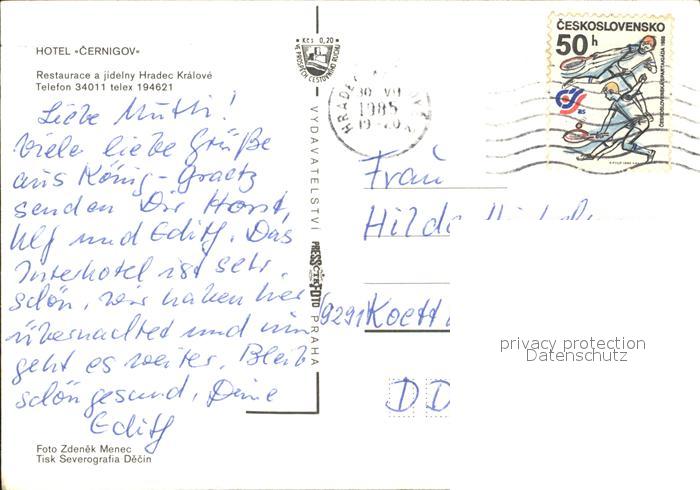 HOTEL »ČERNIGOV«
Restaurace a jídelny Hradec Králové
Telefon 34011 telex 194621
Liebe Mutti!
Viele liebe Grüße
aus König-Graetz
senden Dir Horst,
Ulf und Edith. Das
Interhotel ist sehr
schön, wir haben hier
übernachtet und nun
geht es weiter. Bleib
schön gesund, Deine
Edith
Foto Zdeněk Menec
Tisk Severografia Děčín
Kčs 0,20
VYDAVATELSTVÍ PRESSFOTO PRAHA
HRADEC
30. VII
1985
19-20
ČESKOSLOVENSKO
50 h
ČESKOSLOVENSKÁ SPARTAKIÁDA 1985
Frau
Hilde
9291 Koett
DD
privacy protection
Datenschutz